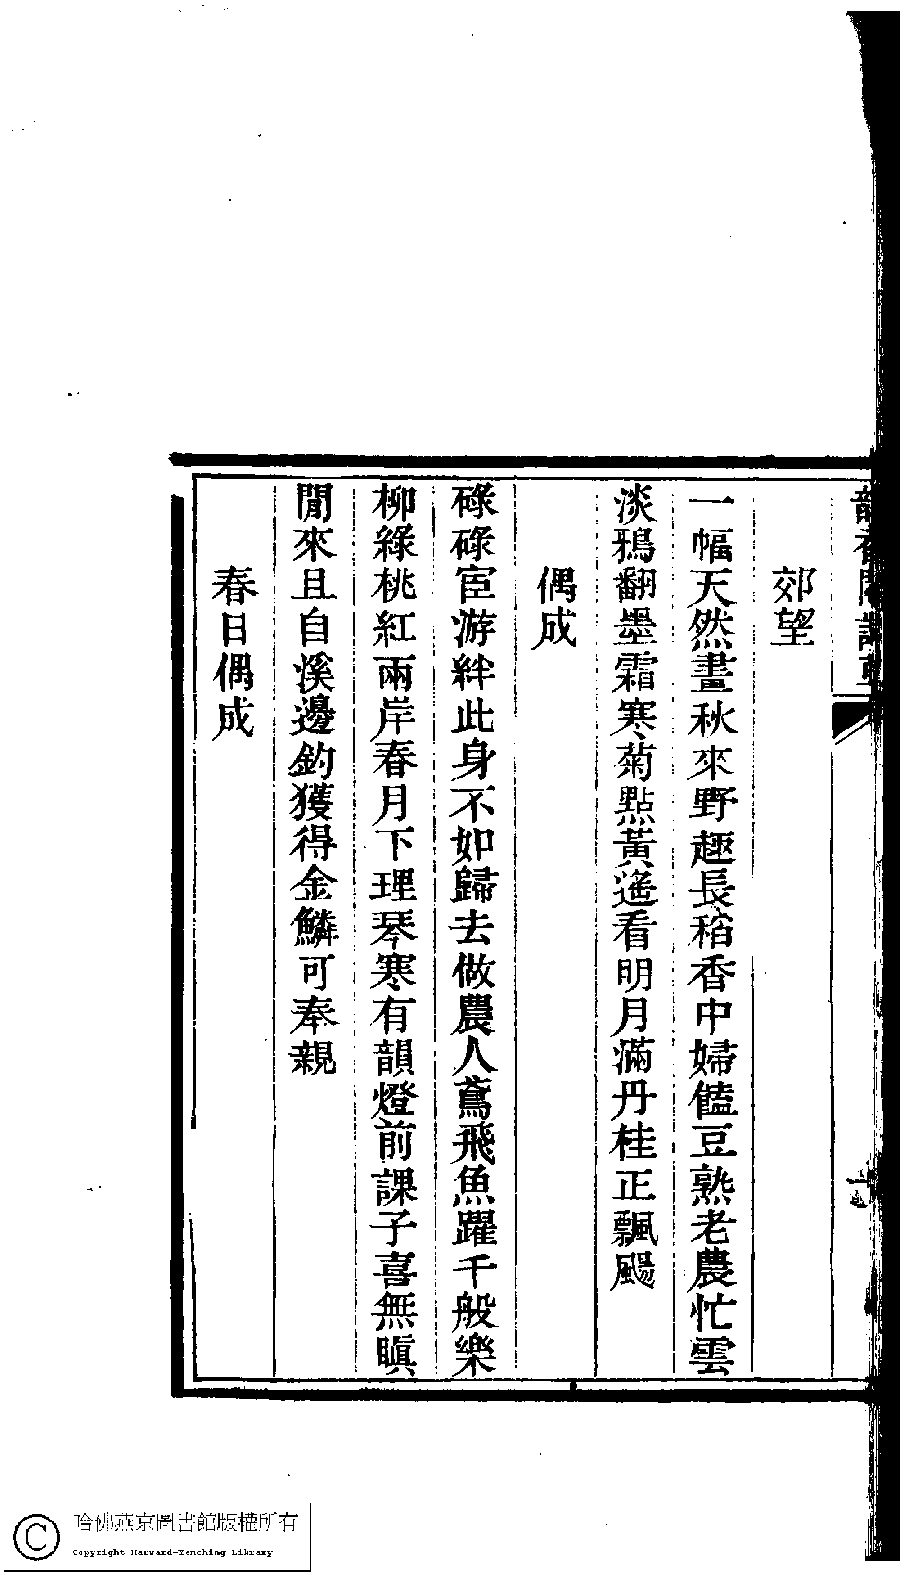 郊望
一幅天然畫秋來野趣長稻香中婦饁豆熟老農忙雲
淡鴉翻墨霜寒菊點黃遙看明月滿丹桂正飄颺
偶成
碌碌宦游絆此身不如歸去做農人鳶飛魚躍千般樂
柳綠桃紅兩岸春月下理琴寒有韻燈前課子喜無瞋
閒來且自溪邊釣獲得金鱗可奉親
春日偶成
哈佛燕京圖書館版權所有
Copyright Harvard-Yenching Library